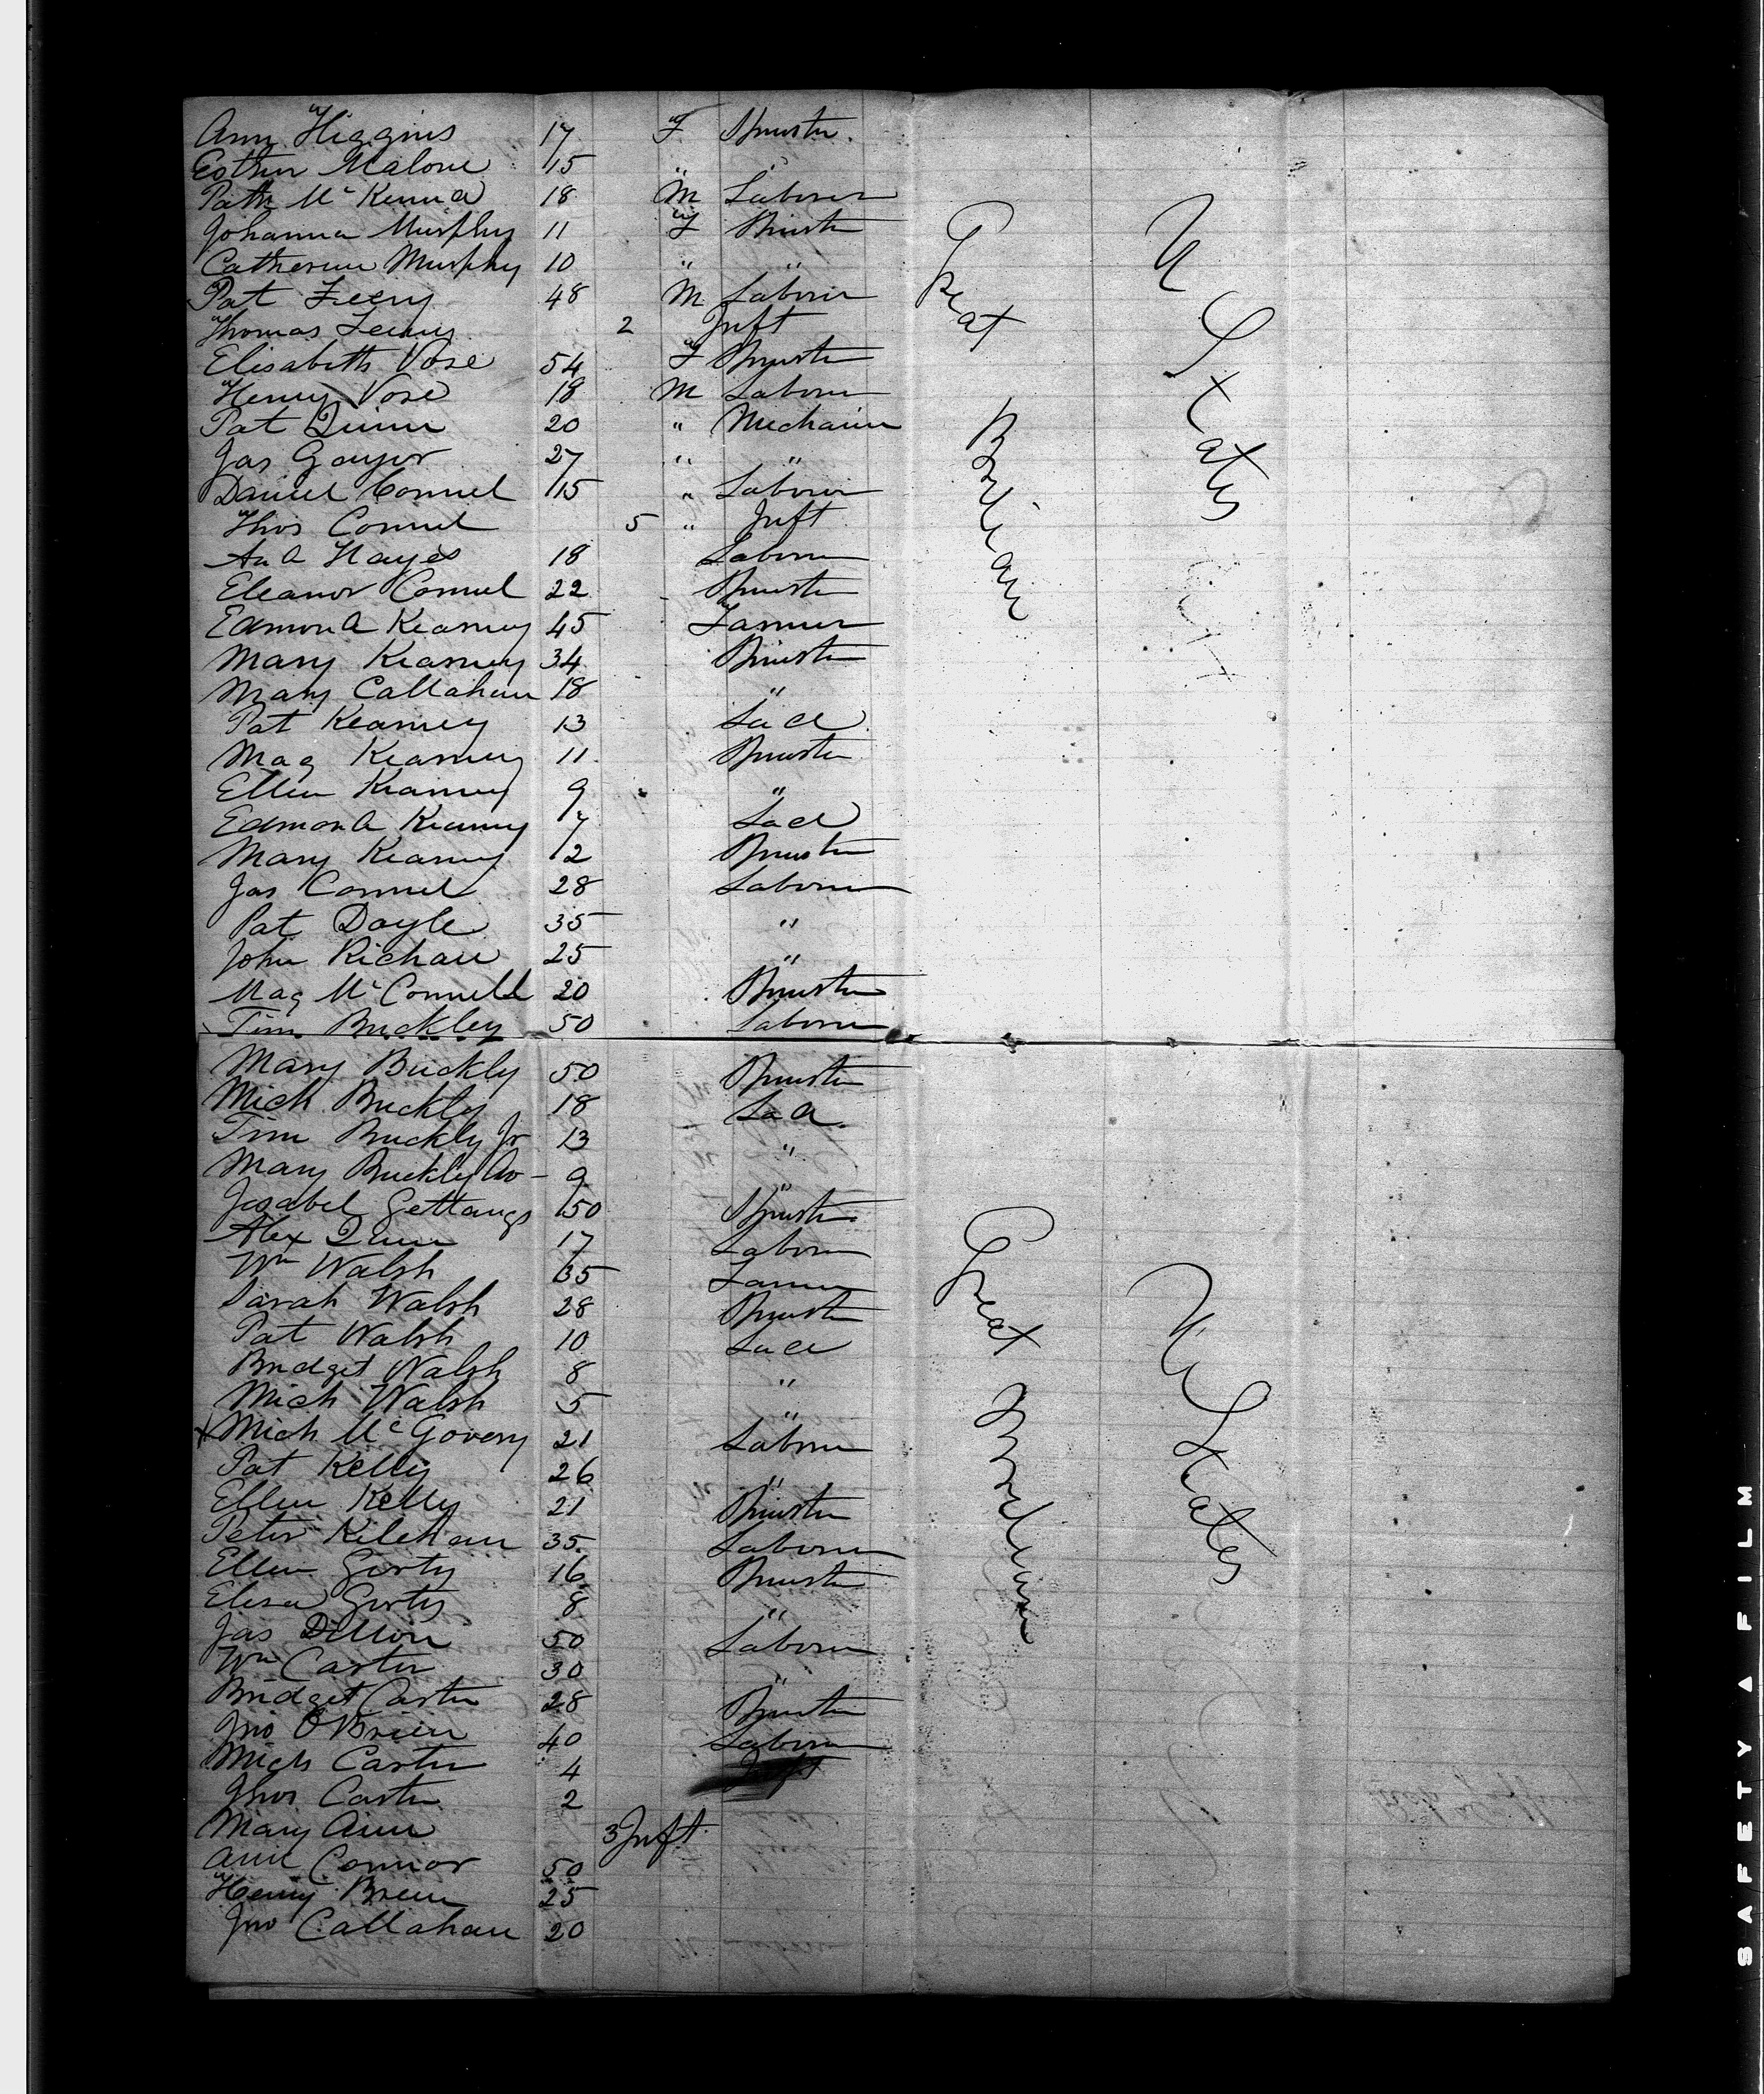 Ann Higgins 17 F Spinster
Esther Malone 15 "
Patk McKenna 18 M Laborer
Johanna Murphy 11 F Spinster
Catherine Murphy 10 " "
Pat Feeny 48 M Laborer
Thomas Feeny 2 Inft
Elisabeth Vose 54 F Spinster
Henry Vose 18 M Laborer
Pat Quinn 20 " Mechanic
Jas Gaynor 27 " "
Daniel Connel 15 " Laborer
Thos Connel 5 " Inft
And Hayes 18 Laborer
Eleanor Connel 22 Spinster
Edmond Kearney 45 Farmer
Mary Kearney 34 Spinster
Mary Callahan 18 "
Pat Kearney 13 Lad
Mag Kearney 11 Spinster
Ellen Kearney 9 "
Edmond Kearney 7 Lad
Mary Kearney 2 Spinster
Jas Connel 28 Laborer
Pat Doyle 35 "
John 25 "
Mag McConnell 20 Spinster
Tim Buckley 50 Laborer
Mary Buckly 50 Spinster
Mick Buckly 18 Lad
Tim Buckly Jr 13 "
Mary Buckly 9 "
Isabel Gettangs 50 Spinster
Alex Quinn 17 Laborer
Wm Walsh 35 Farmer
Sarah Walsh 28 Spinster
Pat Walsh 10 Lad
Bridget Walsh 8 "
Mich Walsh 5 "
Mich McGovery 21 Laborer
Pat Kelly 26 "
Ellen Kelly 21 Spinster
Peter 35 Laborer
Ellen Girty 16 Spinster
Elisa Girty 8 "
Jas Dillon 50 Laborer
Wm Carter 30 "
Bridget Carter 28 Spinster
Jno OBrien 40 Laborer
Mich Carter 4 Inft
Thos Carter 2
Mary Ann 3 Inft
Ann Connor 50
Henry 25
Jno Callahan 20
Great Britian
U States
Great Britian
U States
SAFETY FILM